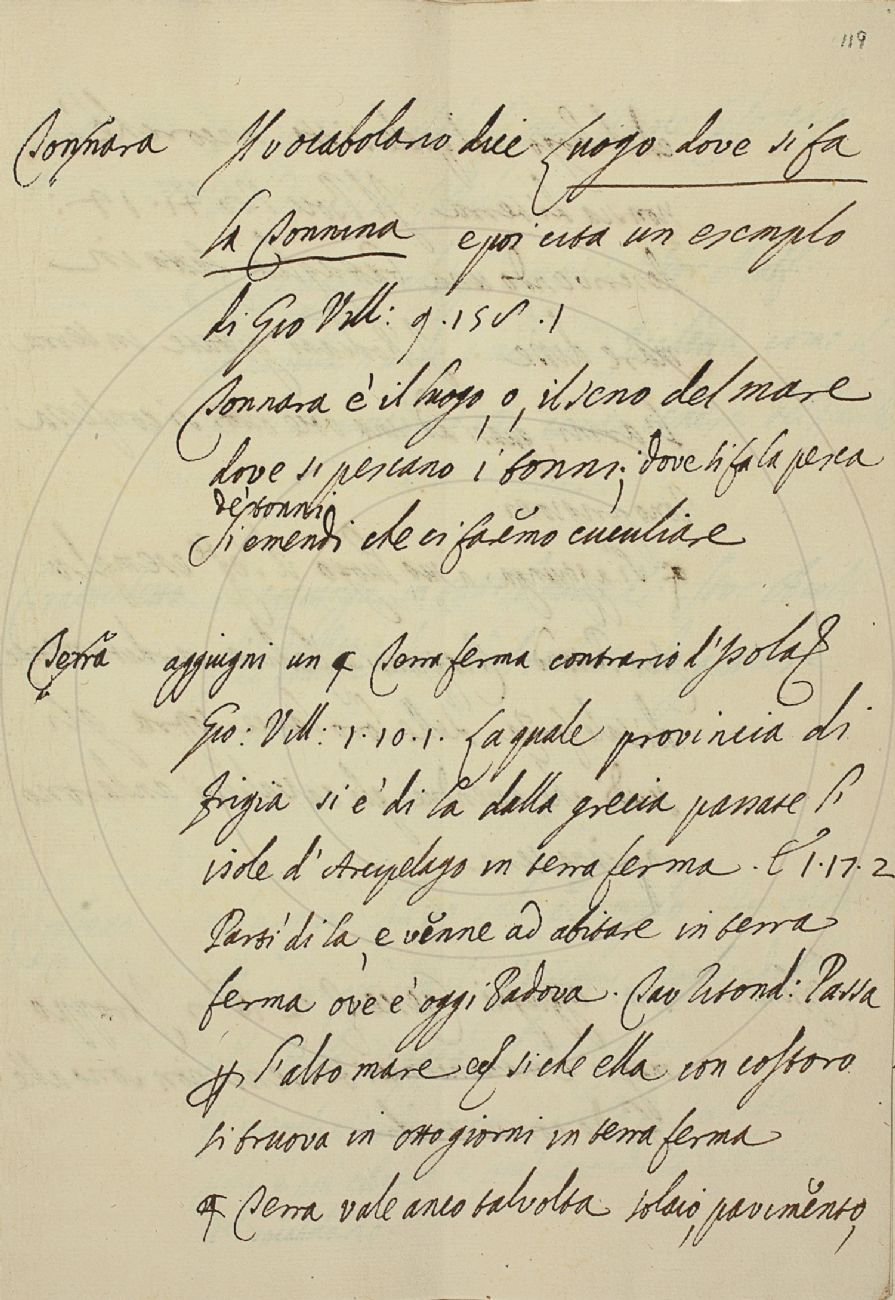 119
Tonnara Il vocabolario dice Luogo dove si fa
la Tonnina e poi cita un esemplo
di Gio Vill: 9.158.1
Tonnara è il luogo, o, il seno del mare
dove si pescano i tonni; dove si fa la pesca
de' tonni
Si emendi che ci farẽmo cuculiare
Terra aggiugni un ¶ Terra ferma contrario d'Isola
Gio: Vill: 1.10.1. La quale provincia di
frigia si è di la dalla grecia passate l'
isole d'Arcipelago in terra ferma. E 1.17.2
Partì di la, e vẽnne ad abitare in terra
ferma ove è oggi Padova. Tav Ritond: Passa
l'alto mare ec si che ella con costoro
si truova in otto giorni in terra ferma
¶ Terra vale anco talvolta solaio, pavimẽnto,